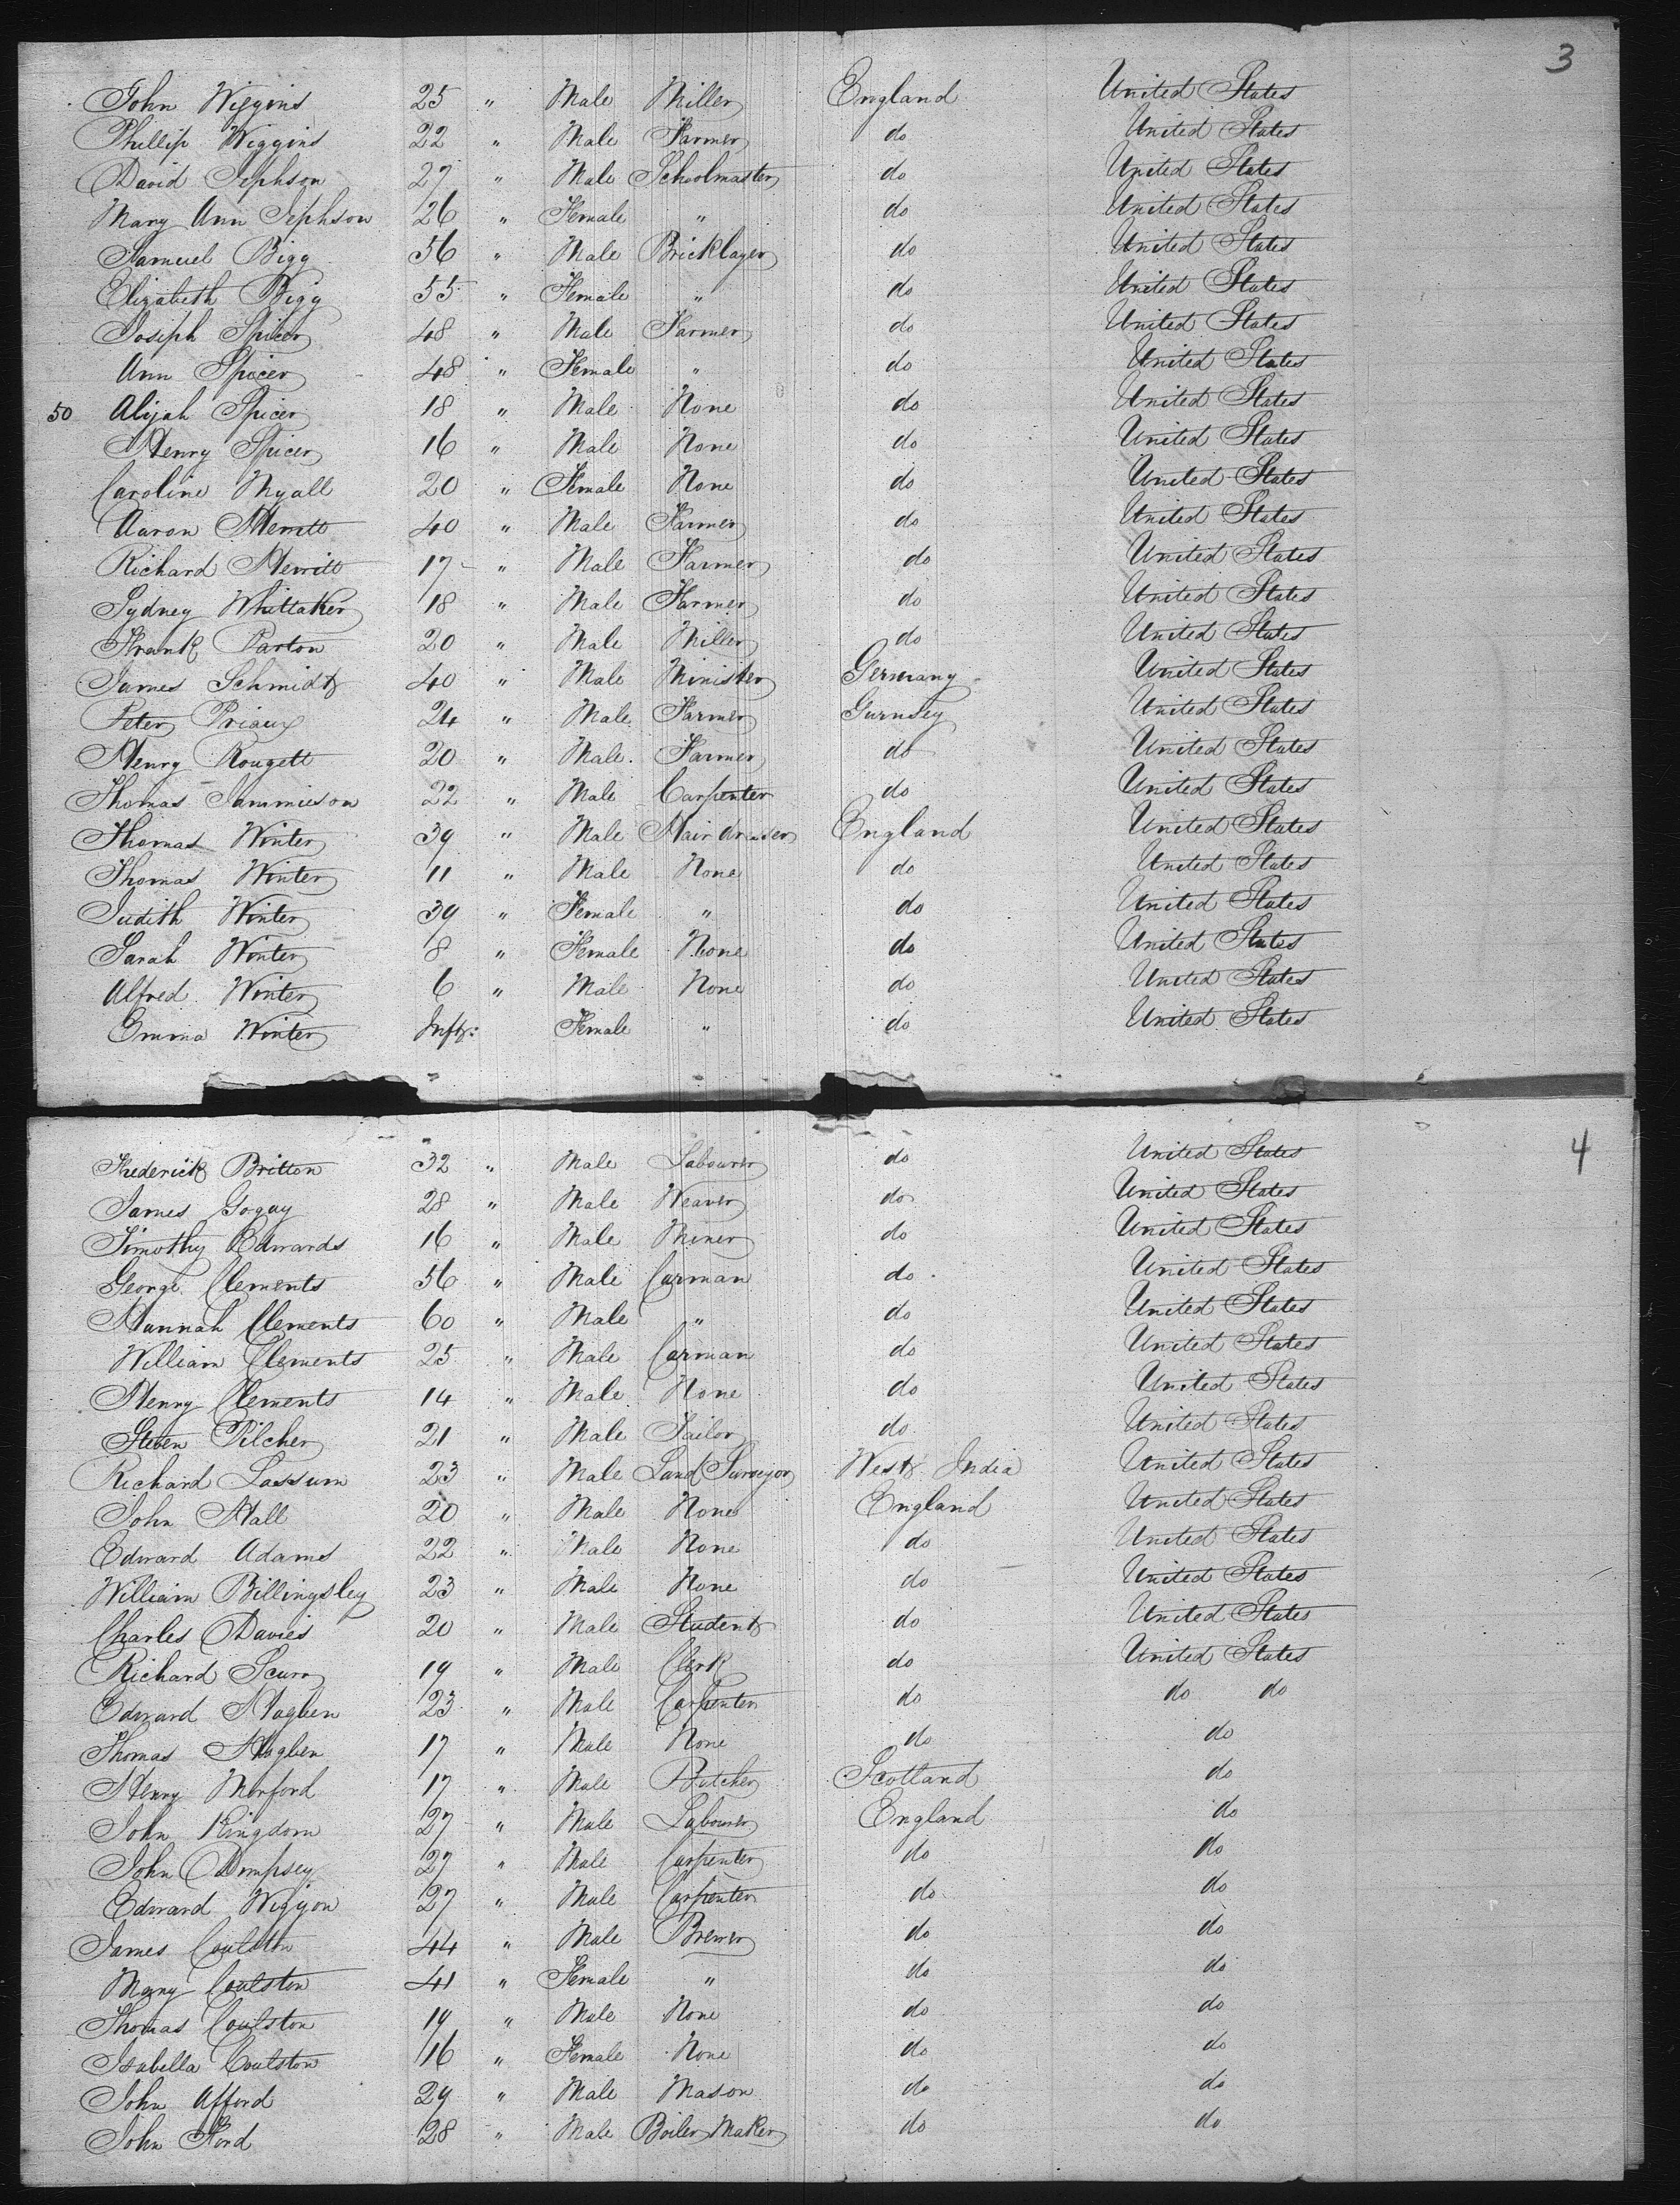 3
John Wiggins 25 " Male Miller England United States
Phillip Wiggins 22 " Male Farmer do United States
David Jephson 27 " Male Schoolmaster do United States
Mary Ann Jephson 26 " Female " do United States
Samuel Bigg 56 " Male Bricklayer do United States
Elizabeth Bigg 55 " Female " do United States
Joseph Spicer 48 " Male Farmer do United States
Ann Spicer 48 " Female " do United States
50 Alijah Spicer 18 " Male None do United States
Henry Spicer 16 " Male None do United States
Caroline Myall 20 " Female None do United States
Aaron Merritt 40 " Male Farmer do United States
Richard Merritt 17 " Male Farmer do United States
Sydney Whittaker 18 " Male Farmer do United States
Frank Parton 20 " Male Miller do United States
James Schmidt 40 " Male Minister Germany United States
Peter Priaux 24 " Male Farmer Gurnsey United States
Henry Rougett 20 " Male Farmer do United States
Thomas Jammieson 22 " Male Carpenter do United States
Thomas Winter 39 " Male Hair dresser England United States
Thomas Winter 11 " Male None do United States
Judith Winter 39 " Female " do United States
Sarah Winter 8 " Female None do United States
Alfred Winter 6 " Male None do United States
Emma Winter Inft: Female " do United States
4
Frederick Britton 32 " Male Labourer do United States
James Gogay 28 " Male Weaver do United States
Timothy Edwards 16 " Male Miner do United States
George Clements 56 " Male Carman do United States
Hannah Clements 60 " Male " do United States
William Clements 25 " Male Carman do United States
Henry Clements 14 " Male None do United States
Steven Pilcher 21 " Male Tailor do United States
Richard Lassum 23 " Male Land Surveyor West India United States
John Hall 20 " Male None England United States
Edward Adams 22 " Male None do United States
William Billingsley 23 " Male None do United States
Charles Davies 20 " Male Student do United States
Richard Scurr 19 " Male Clerk do United States
Edward Hagben 23 " Male Carpenter do do do
Thomas Hagben 17 " Male None do do
Henry Morford 17 " Male Butcher Scotland do
John Kingdom 27 " Male Labourer England do
John Dempsey 27 " Male Carpenter do do
Edward Wiggon 27 " Male Carpenter do do
James Coulston 44 " Male Brewer do do
Mary Coulston 41 " Female " do do
Thomas Coulston 19 " Male None do do
Isabella Coulston 16 " Female None do do
John Afford 29 " Male Mason do do
John Ford 28 " Male Boiler Maker do do